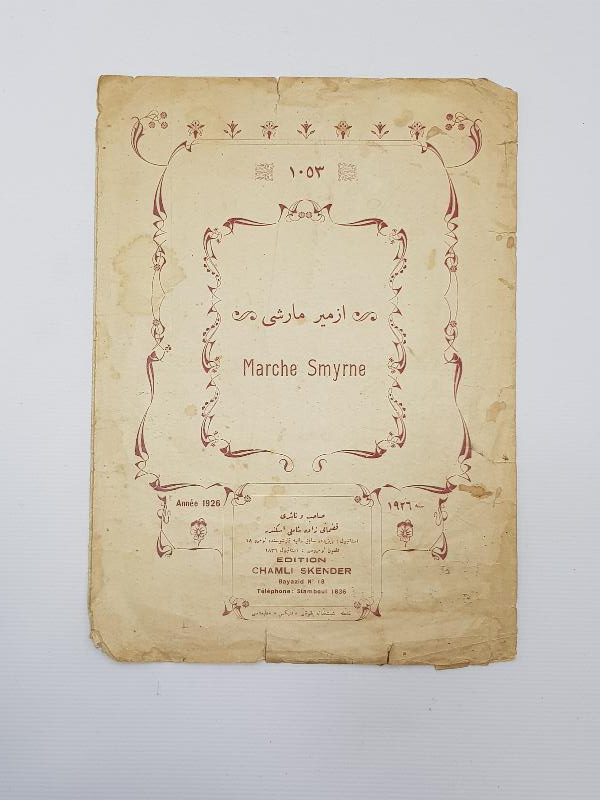 ١٠٥٣
ازمير مارشى
Marche Smyrne
Année 1926
سنه ١٩٢٦
صاحب و ناشرى
شاملى اسكندر
EDITION
CHAMLI SKENDER
Bayazid Nº 18
Téléphone: Stamboul 1836